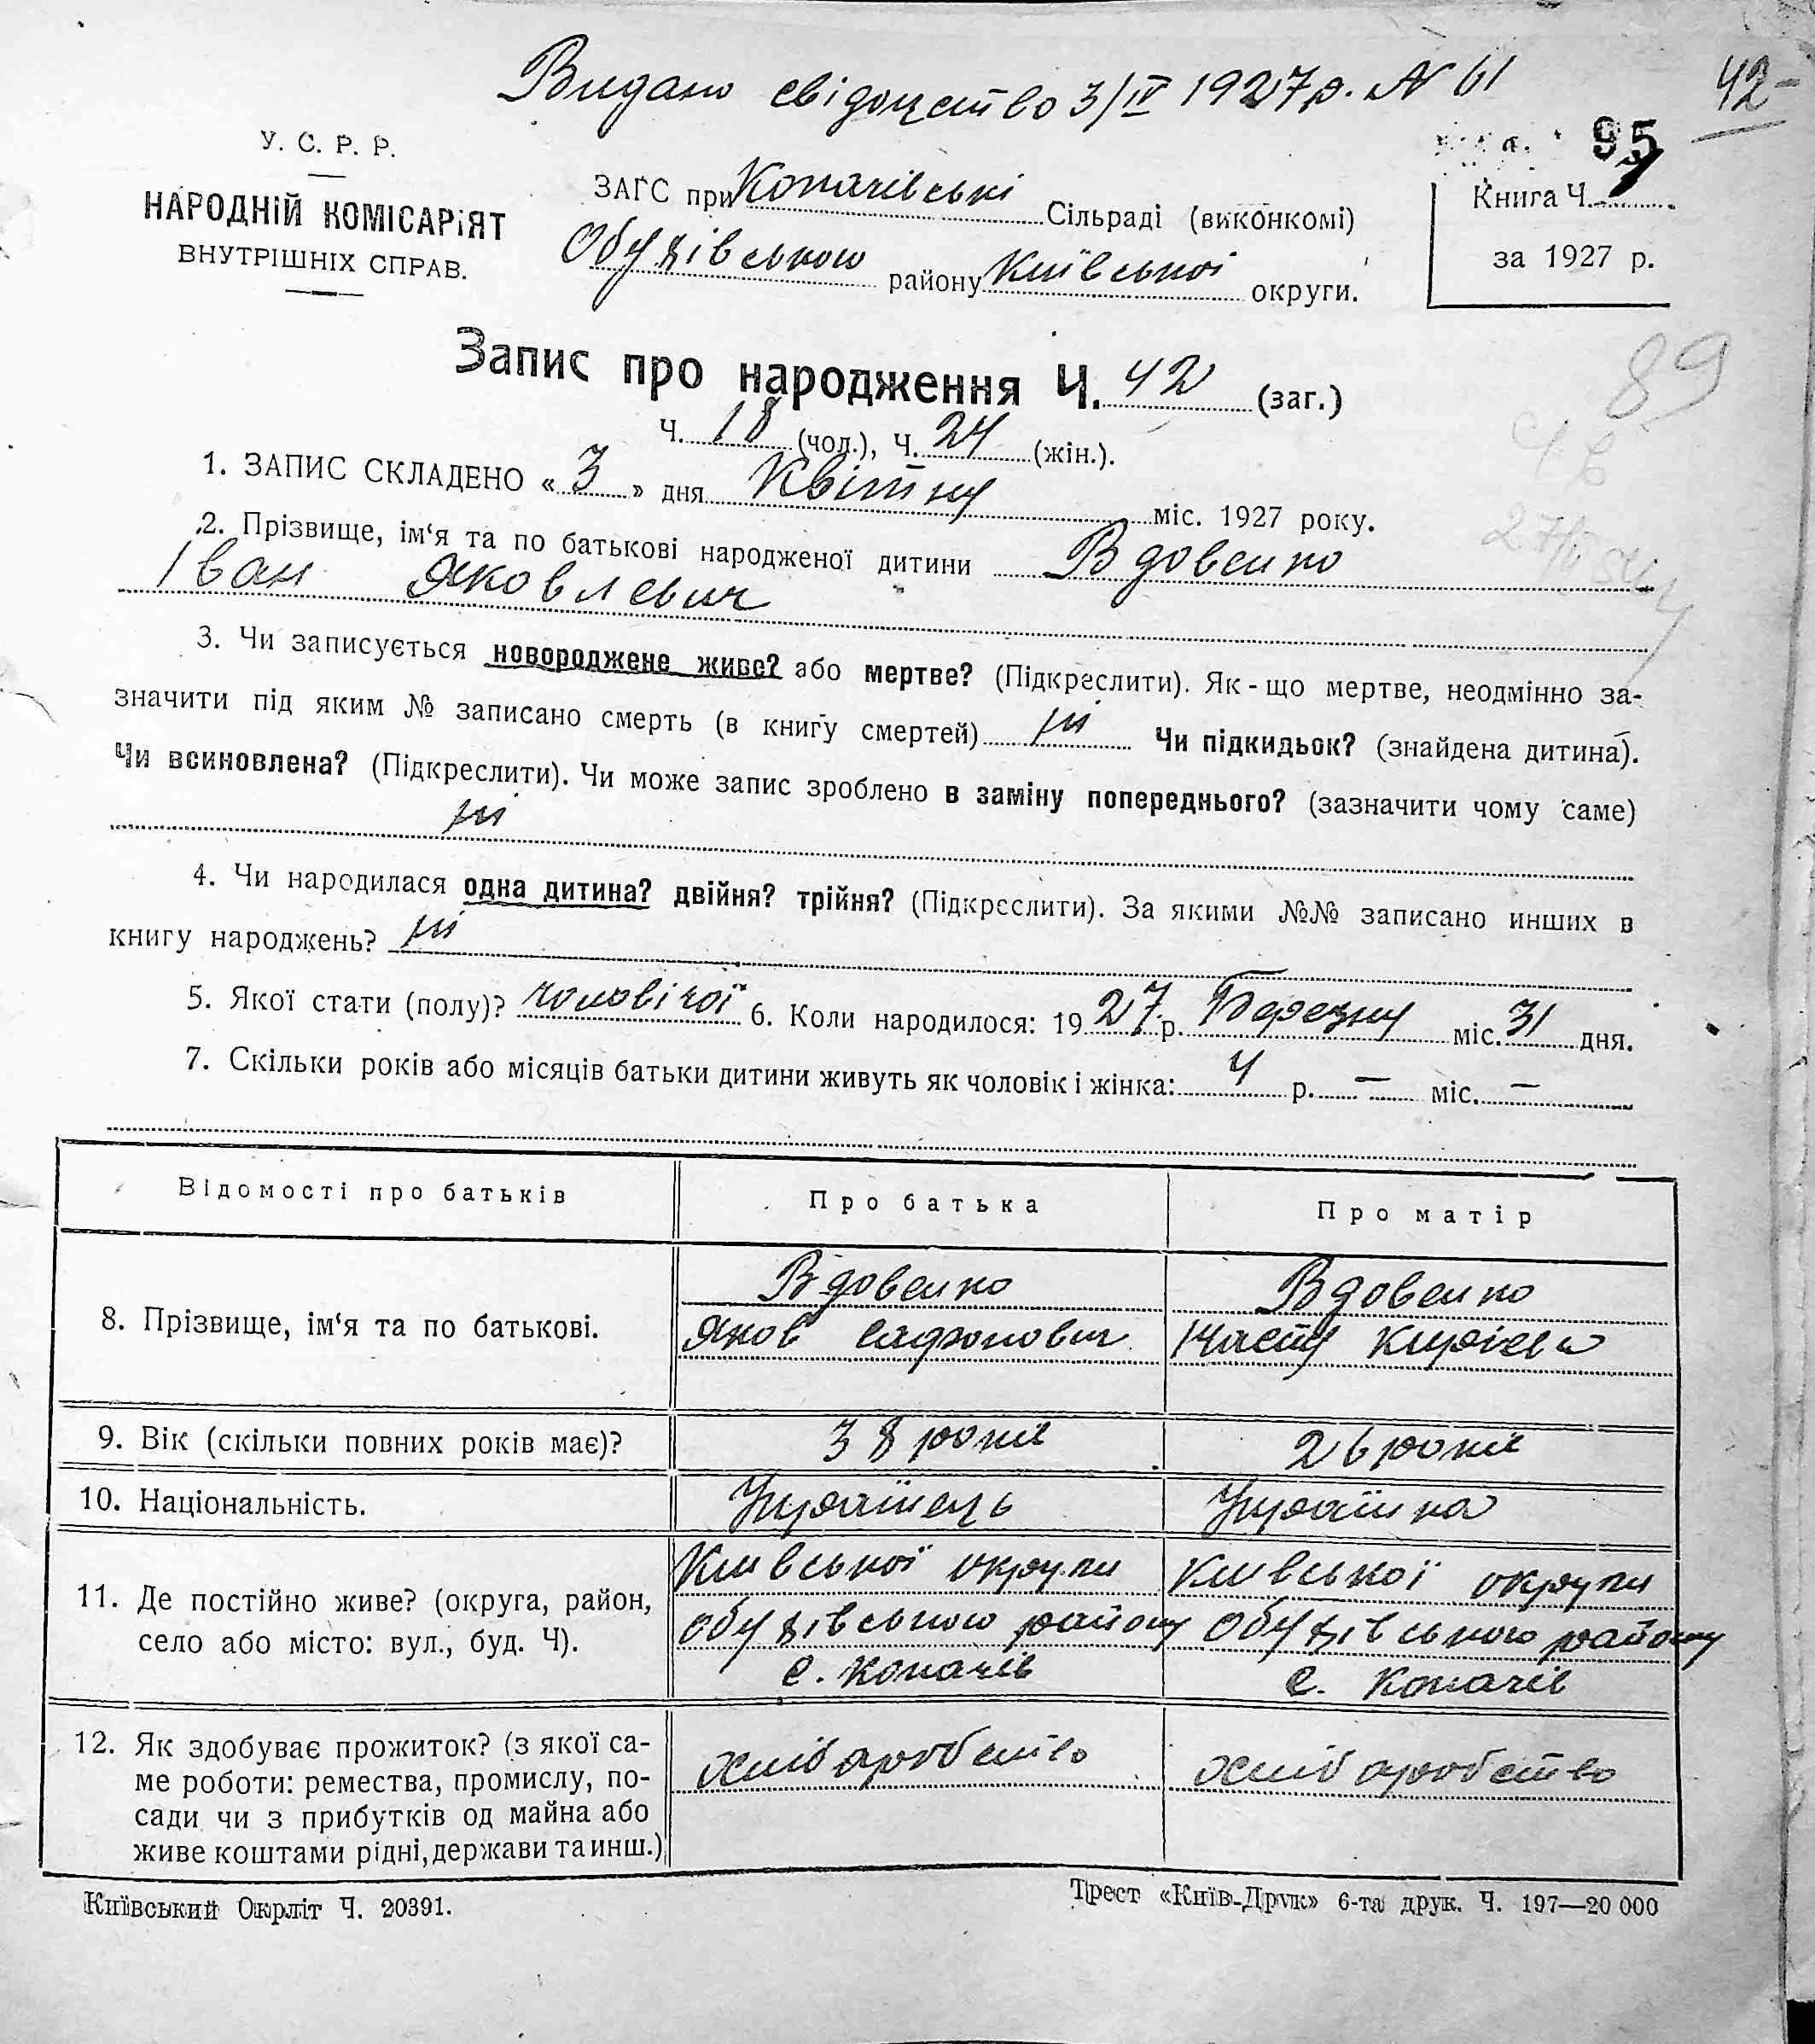 Видано свідоцтво 3/IV 1927 р. N 61
42-
95
У. С. Р. Р.
НАРОДНІЙ КОМІСАРІЯТ
ВНУТРІШНІХ СПРАВ.
ЗАГС при Копачівські Сільраді (виконкомі)
Обухівського району Київської округи.
Книга Ч.
за 1927 р.
89
Запис про народження Ч. 42 (заг.)
Ч. 18 (чол.), Ч. 24 (жін.).
1. ЗАПИС СКЛАДЕНО « 3 » дня Квітня міс. 1927 року.
2. Прізвище, ім‘я та по батькові народженої дитини Вдовенко
Іван Яковлевич
3. Чи записується новороджене живе? або мертве? (Підкреслити). Як-що мертве, неодмінно за-
значити під яким № записано смерть (в книгу смертей) ні Чи підкидьок? (знайдена дитина).
Чи всиновлена? (Підкреслити). Чи може запис зроблено в заміну попереднього? (зазначити чому саме)
ні
4. Чи народилася одна дитина? двійня? трійня? (Підкреслити). За якими №№ записано инших в
книгу народжень? ні
5. Якої стати (полу)? чоловічої 6. Коли народилося: 1927 р. Березня міс. 31 дня.
7. Скільки років або місяців батьки дитини живуть як чоловік і жінка: 4 р. — міс. —
Відомості про батьків Про батька Про матір
8. Прізвище, ім‘я та по батькові.
Вдовенко
Яков Сафронович
Вдовенко
Настя
9. Вік (скільки повних років має)? 38 років 26 років
10. Національність. Українець Українка
11. Де постійно живе? (округа, район,
село або місто: вул., буд. Ч).
Київської округи
Обухівського району
с. Копачів
Київської округи
Обухівського району
с. Копачів
12. Як здобуває прожиток? (з якої са-
ме роботи: ремества, промислу, по-
сади чи з прибутків од майна або
живе коштами рідні, держави та инш.)
хліборобство
хліборобство
Київський Окрліт Ч. 20391.
Трест «Київ-Друк» 6-та друк. Ч. 197—20 000